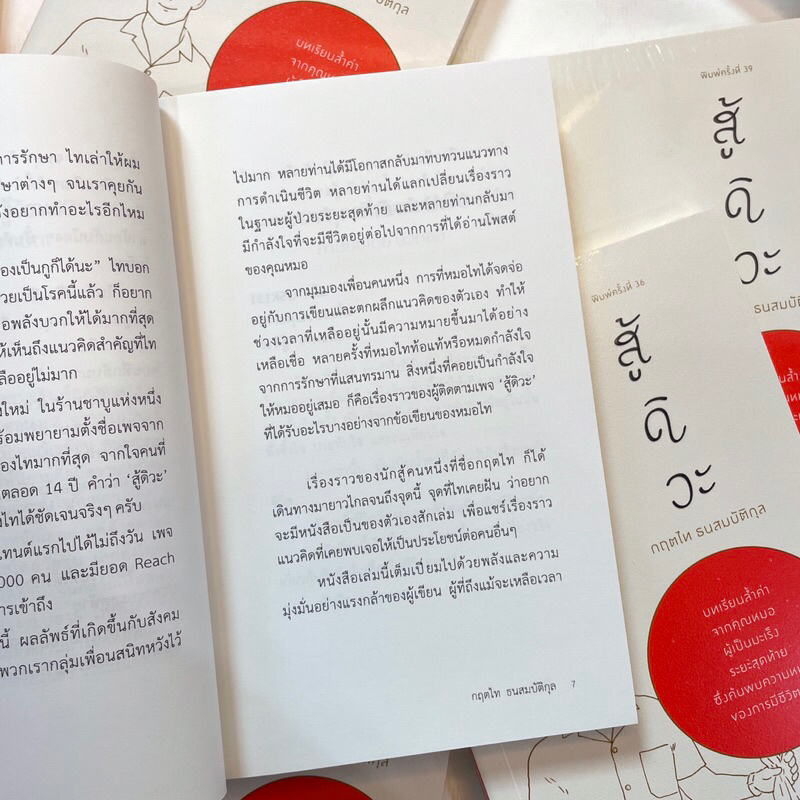 บทเรียนล้ำค่า
จากคุณหมอ
การรักษา ไทเล่าให้ผม
ษาต่างๆ จนเราคุยกัน
ังอยากทำอะไรอีกไหม
องเป็นกูก็ได้นะ” ไทบอก
วยเป็นโรคนี้แล้ว ก็อยาก
อพลังบวกให้ได้มากที่สุด
ห้เห็นถึงแนวคิดสำคัญที่ไท
หลืออยู่ไม่มาก
งใหม่ ในร้านชาบูแห่งหนึ่ง
ร้อมพยายามตั้งชื่อเพจจาก
องไทมากที่สุด จากใจคนที่
ตลอด 14 ปี คำว่า ‘สู้ดิวะ’
งไทได้ชัดเจนจริงๆ ครับ
เทนต์แรกไปได้ไม่ถึงวัน เพจ
000 คน และมียอด Reach
การเข้าถึง
นี้ ผลลัพธ์ที่เกิดขึ้นกับสังคม
พวกเรากลุ่มเพื่อนสนิทหวังไว้
ไปมาก หลายท่านได้มีโอกาสกลับมาทบทวนแนวทาง
การดำเนินชีวิต หลายท่านได้แลกเปลี่ยนเรื่องราว
ในฐานะผู้ป่วยระยะสุดท้าย และหลายท่านกลับมา
มีกำลังใจที่จะมีชีวิตอยู่ต่อไปจากการที่ได้อ่านโพสต์
ของคุณหมอ
จากมุมมองเพื่อนคนหนึ่ง การที่หมอไทได้จดจ่อ
อยู่กับการเขียนและตกผลึกแนวคิดของตัวเอง ทำให้
ช่วงเวลาที่เหลืออยู่นั้นมีความหมายขึ้นมาได้อย่าง
เหลือเชื่อ หลายครั้งที่หมอไทท้อแท้หรือหมดกำลังใจ
จากการรักษาที่แสนทรมาน สิ่งหนึ่งที่คอยเป็นกำลังใจ
ให้หมออยู่เสมอ ก็คือเรื่องราวของผู้ติดตามเพจ ‘สู้ดิวะ’
ที่ได้รับอะไรบางอย่างจากข้อเขียนของหมอไท
เรื่องราวของนักสู้คนหนึ่งที่ชื่อกฤตไท ก็ได้
เดินทางมายาวไกลจนถึงจุดนี้ จุดที่ไทเคยฝัน ว่าอยาก
จะมีหนังสือเป็นของตัวเองสักเล่ม เพื่อแชร์เรื่องราว
แนวคิดที่เคยพบเจอให้เป็นประโยชน์ต่อคนอื่นๆ
หนังสือเล่มนี้เต็มเปี่ยมไปด้วยพลังและความ
มุ่งมั่นอย่างแรงกล้าของผู้เขียน ผู้ที่ถึงแม้จะเหลือเวลา
กฤตไท ธนสมบัติกุล 7
พิมพ์ครั้งที่ 39
สู้
ดิ
วะ
พิมพ์ครั้งที่ 36
สู้
ดิ
วะ
กฤตไท ธนสมบัติกุล
บทเรียนล้ำค่า
จากคุณหมอ
ผู้เป็นมะเร็ง
ระยะสุดท้าย
ซึ่งค้นพบความห
ของการมีชีวิต